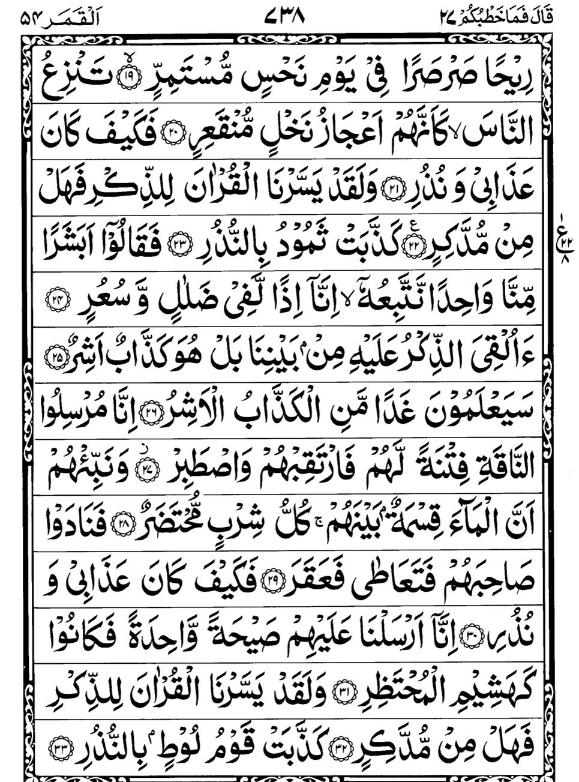 قَالَ فَمَا خَطْبُكُمْ ٢٧ ٧٣٨ اَلْقَمَر ٥٤
رِيْحًا صَرْصَرًا فِيْ يَوْمِ نَحْسٍ مُّسْتَمِرٍّ ۙ ١٩ تَنْزِعُ
النَّاسَ ۙ كَاَنَّهُمْ اَعْجَازُ نَخْلٍ مُّنْقَعِرٍ ٢٠ فَكَيْفَ كَانَ
عَذَابِيْ وَ نُذُرِ ٢١ وَلَقَدْ يَسَّرْنَا الْقُرْاٰنَ لِلذِّكْرِ فَهَلْ
مِنْ مُّدَّكِرٍ ٢٢ ع كَذَّبَتْ ثَمُوْدُ بِالنُّذُرِ ٢٣ فَقَالُوْۤا اَبَشَرًا
ع ١ ٢٢ ٨
مِّنَّا وَاحِدًا نَّتَّبِعُهٗۤ ۙ اِنَّاۤ اِذًا لَّفِيْ ضَلٰلٍ وَّ سُعُرٍ ٢٤
ءَاُلْقِيَ الذِّكْرُ عَلَيْهِ مِنْۢ بَيْنِنَا بَلْ هُوَ كَذَّابٌ اَشِرٌ ٢٥
سَيَعْلَمُوْنَ غَدًا مَّنِ الْكَذَّابُ الْاَشِرُ ٢٦ اِنَّا مُرْسِلُوا
النَّاقَةِ فِتْنَةً لَّهُمْ فَارْتَقِبْهُمْ وَاصْطَبِرْ ز ٢٧ وَنَبِّئْهُمْ
اَنَّ الْمَآءَ قِسْمَةٌۢ بَيْنَهُمْ ۚ كُلُّ شِرْبٍ مُّحْتَضَرٌ ٢٨ فَنَادَوْا
صَاحِبَهُمْ فَتَعَاطٰى فَعَقَرَ ٢٩ فَكَيْفَ كَانَ عَذَابِيْ وَ
نُذُرِ ٣٠ اِنَّاۤ اَرْسَلْنَا عَلَيْهِمْ صَيْحَةً وَّاحِدَةً فَكَانُوْا
كَهَشِيْمِ الْمُحْتَظِرِ ٣١ وَلَقَدْ يَسَّرْنَا الْقُرْاٰنَ لِلذِّكْرِ
فَهَلْ مِنْ مُّدَّكِرٍ ٣٢ كَذَّبَتْ قَوْمُ لُوْطٍۭ بِالنُّذُرِ ٣٣